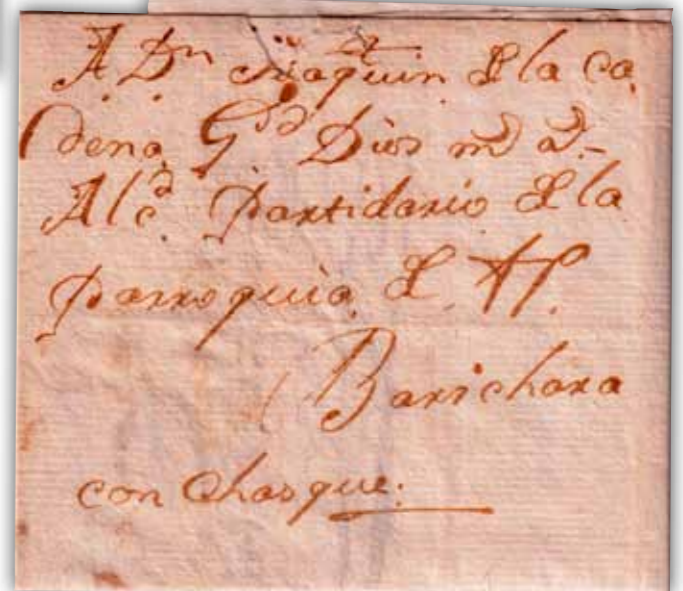 A Dn Joaquin de la Ca
dena Gde Dios ms as
Alce Partidario de la
Parroquia de
Barichara
con Chasque.